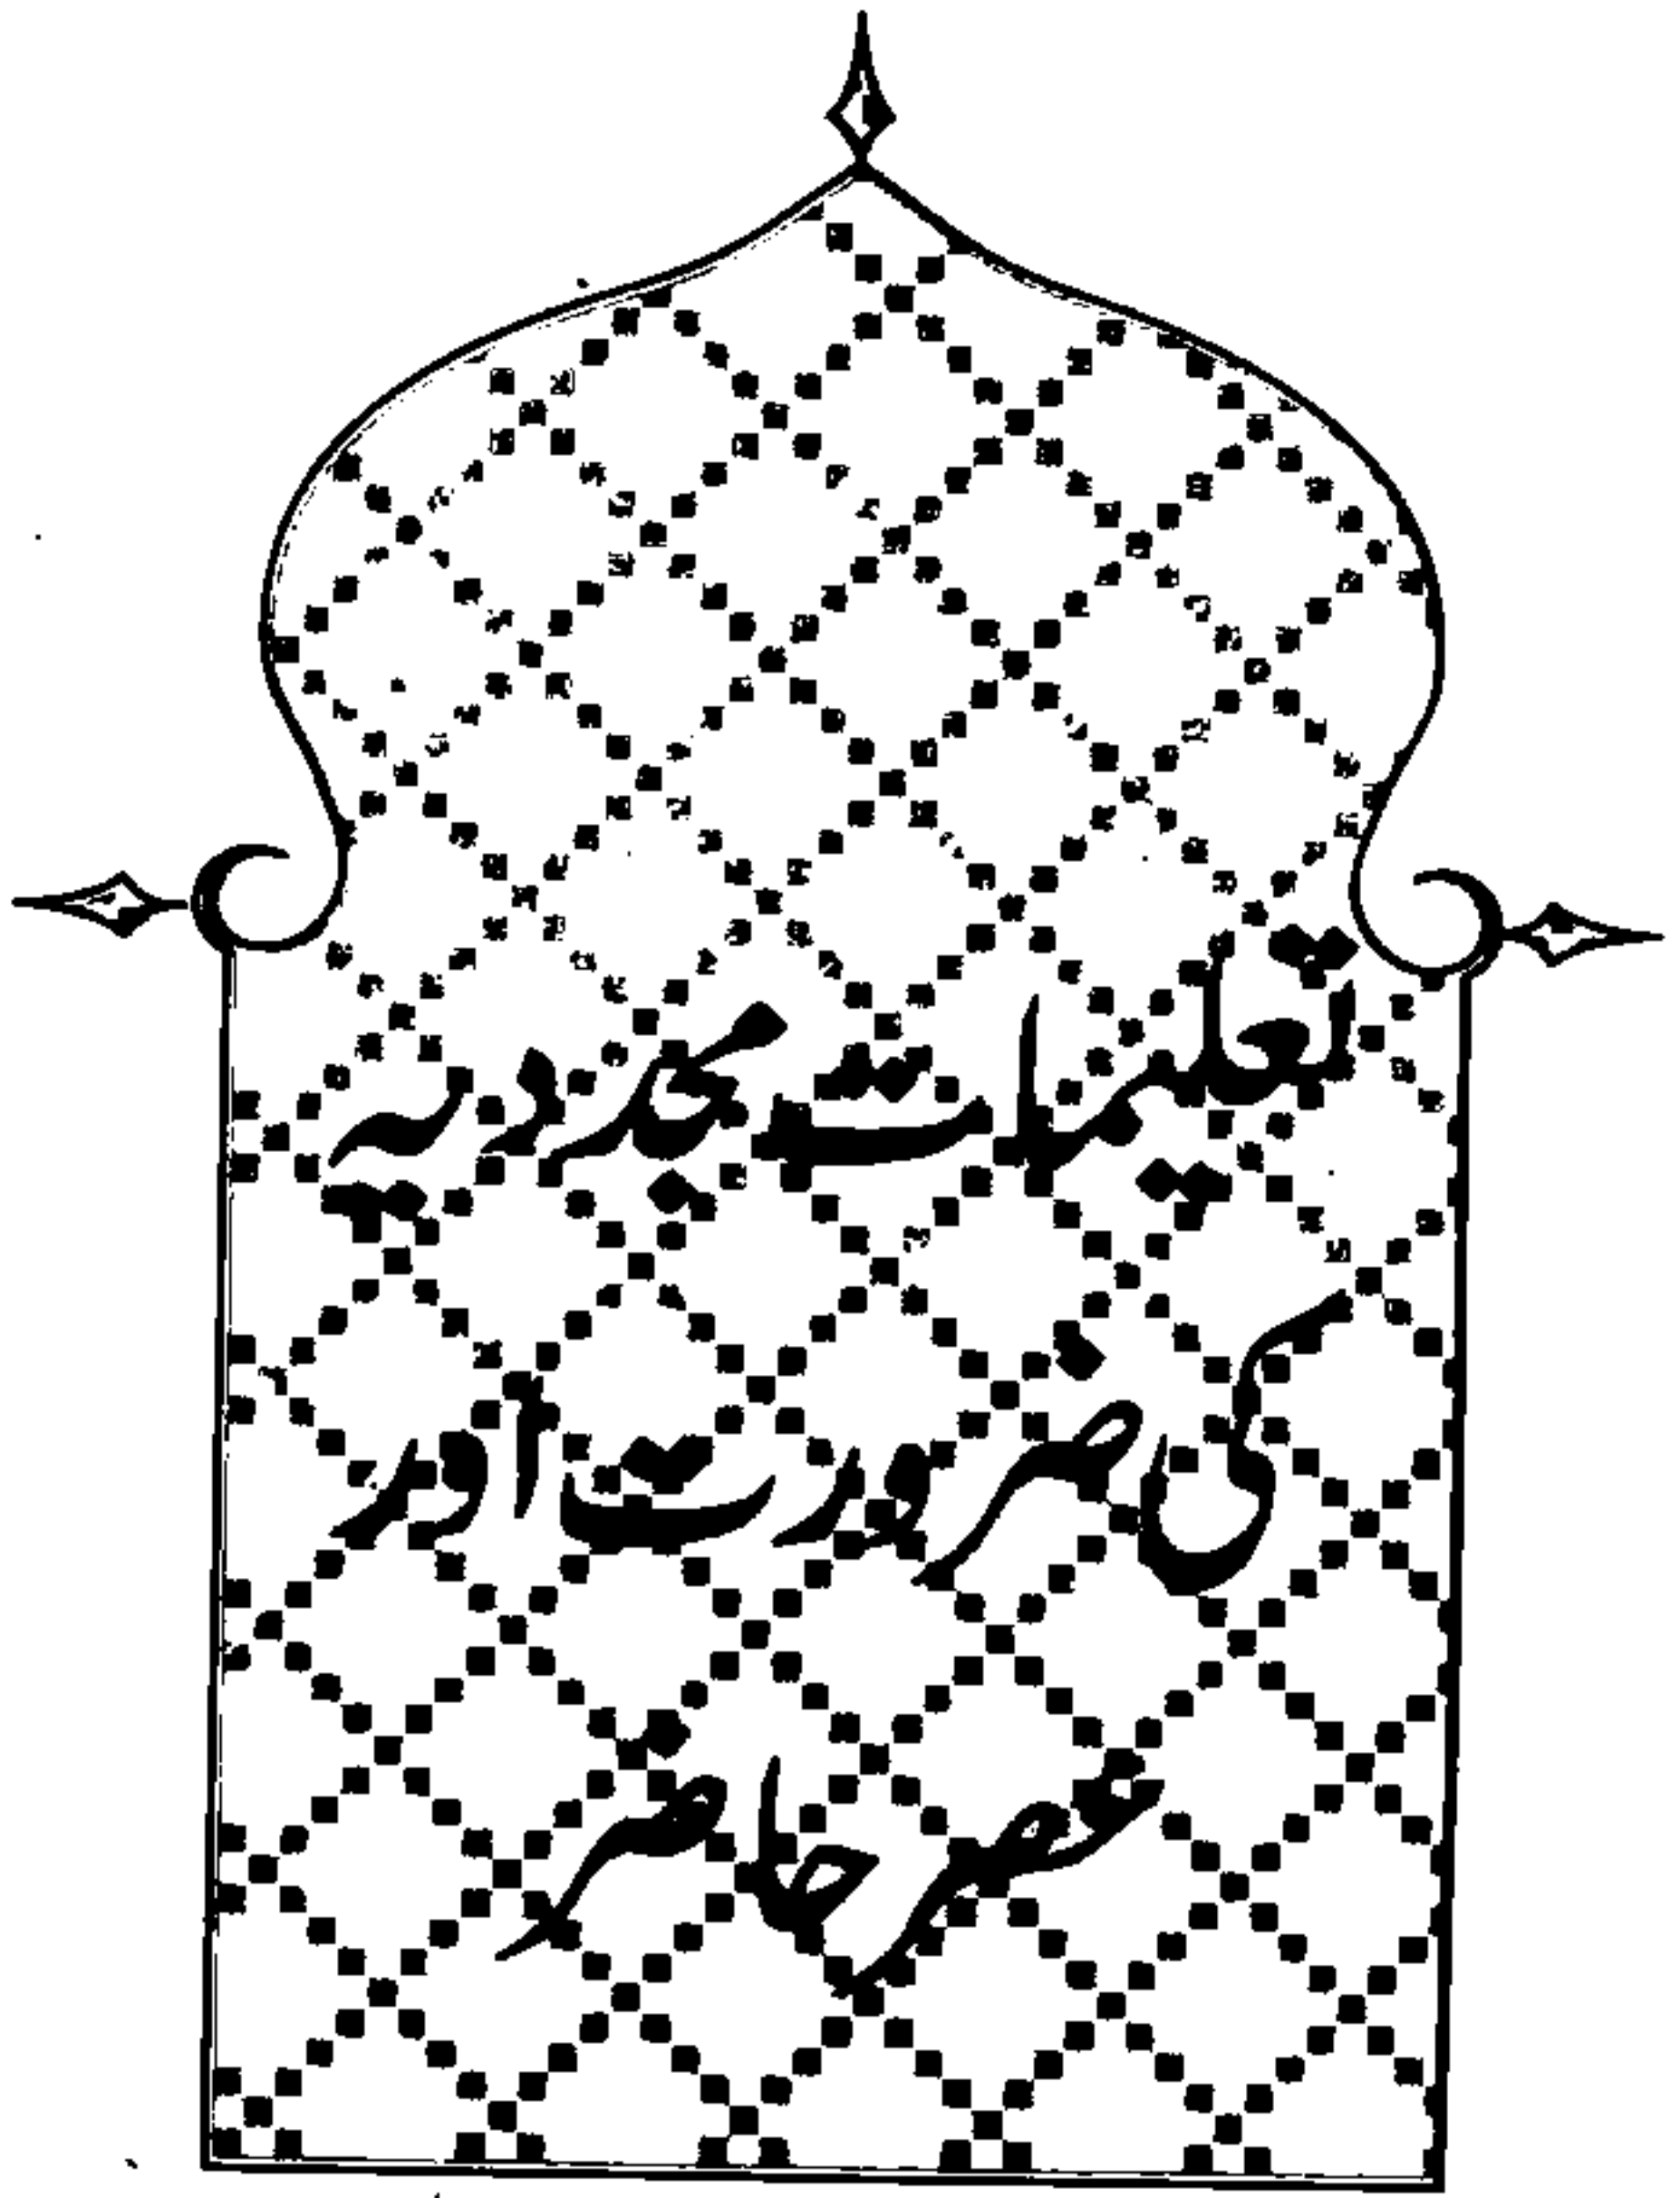 تعلیماتِ مجددیہ
کی ضرورت اور
عصرِ حاضر